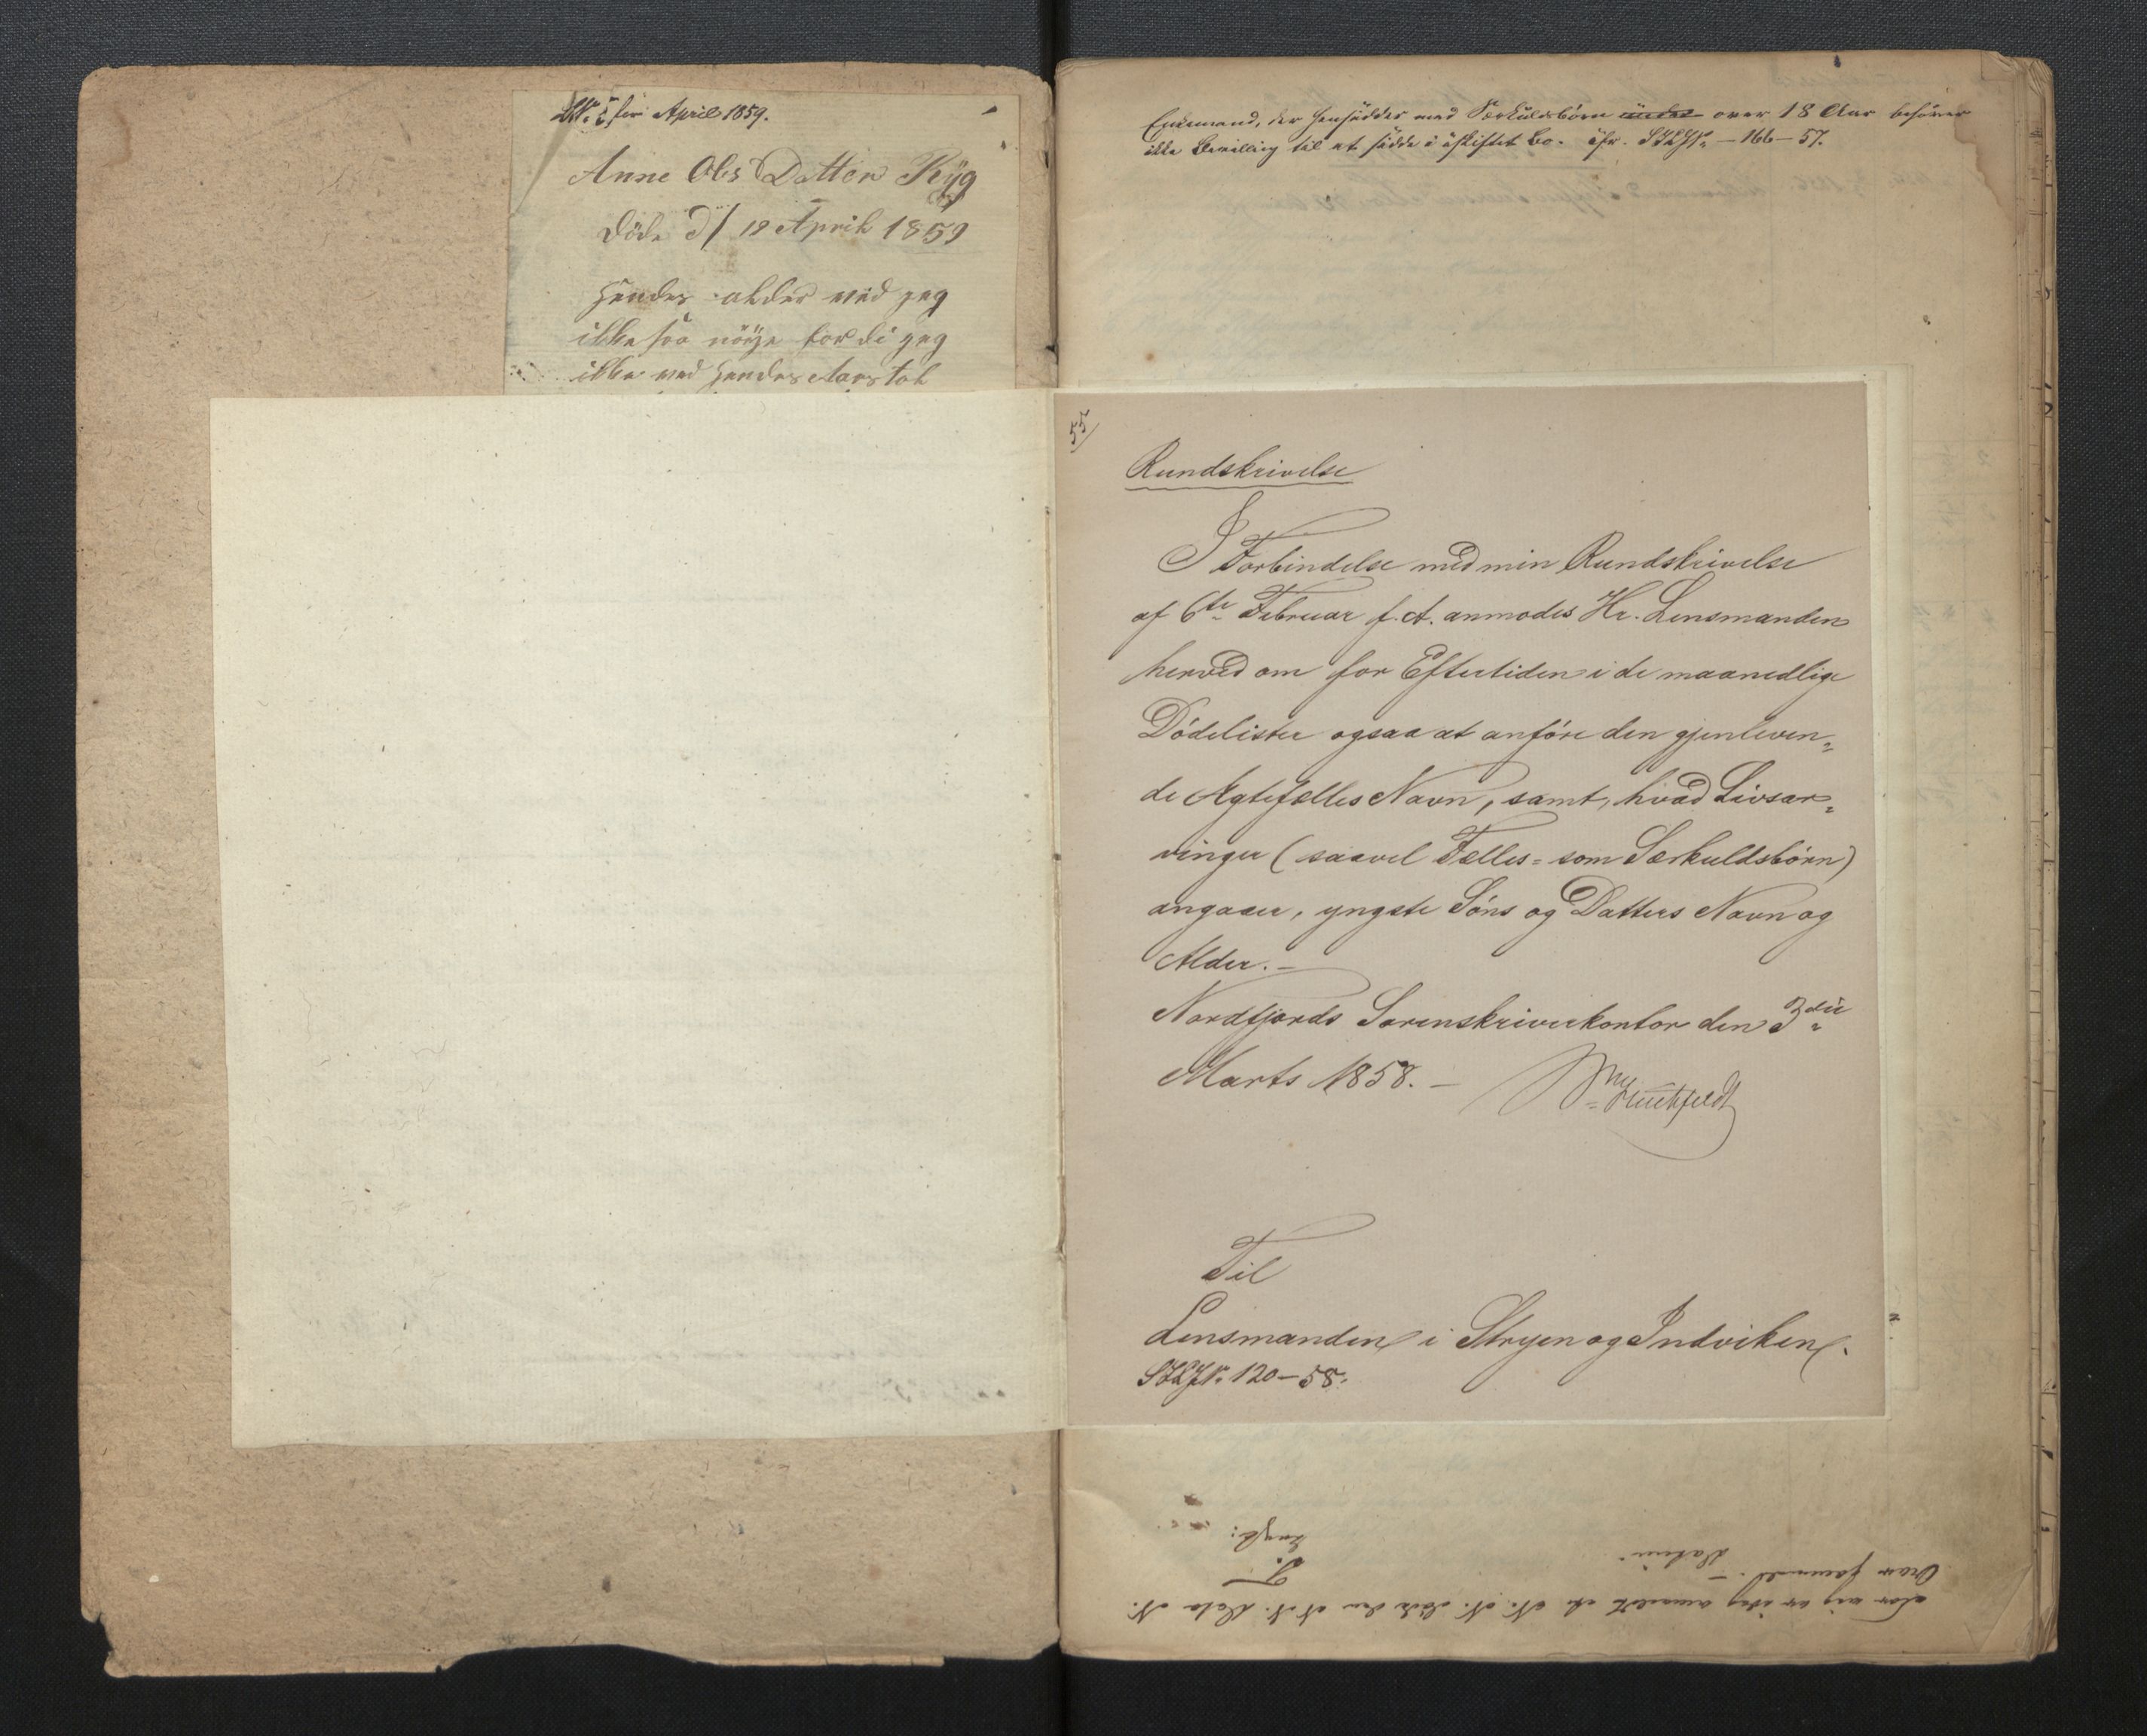 No. 5 for April 1859.
Anne Ols Datter Ryg
Döde d/ 12 April 1859
hendes alder ved jeg
ikke saa nöye for di jeg
ikke ved hendes Aarstal
Enkemand, der hensidder med Særkuldsbörn under over 18 Aar behöver
ikke Bevilling til at sidde i uskiftet Bo. cfr. – 166 – 57.
55/
Rundskrivelse
I Forbindelse med min Rundskrivelse
af 6te Februar f. A. anmodes Hr. Lensmanden
herved om for Eftertiden i de maanedlige
Dödelister ogsaa at anföre den gjenleven=
de Ægtefælles Navn, samt, hvad Livsar=
vinger (saavel Fælles= som Særkuldsbörn)
angaaer, yngste Söns og Datters Navn og
Alder. –
Nordfjords Sorenskriverkontor den 3die
Marts 1858. –
Til
Lensmanden i Stryen og Indviken.
120 – 58.
For mig er idag anmeldt at N. N. döde den
Datum